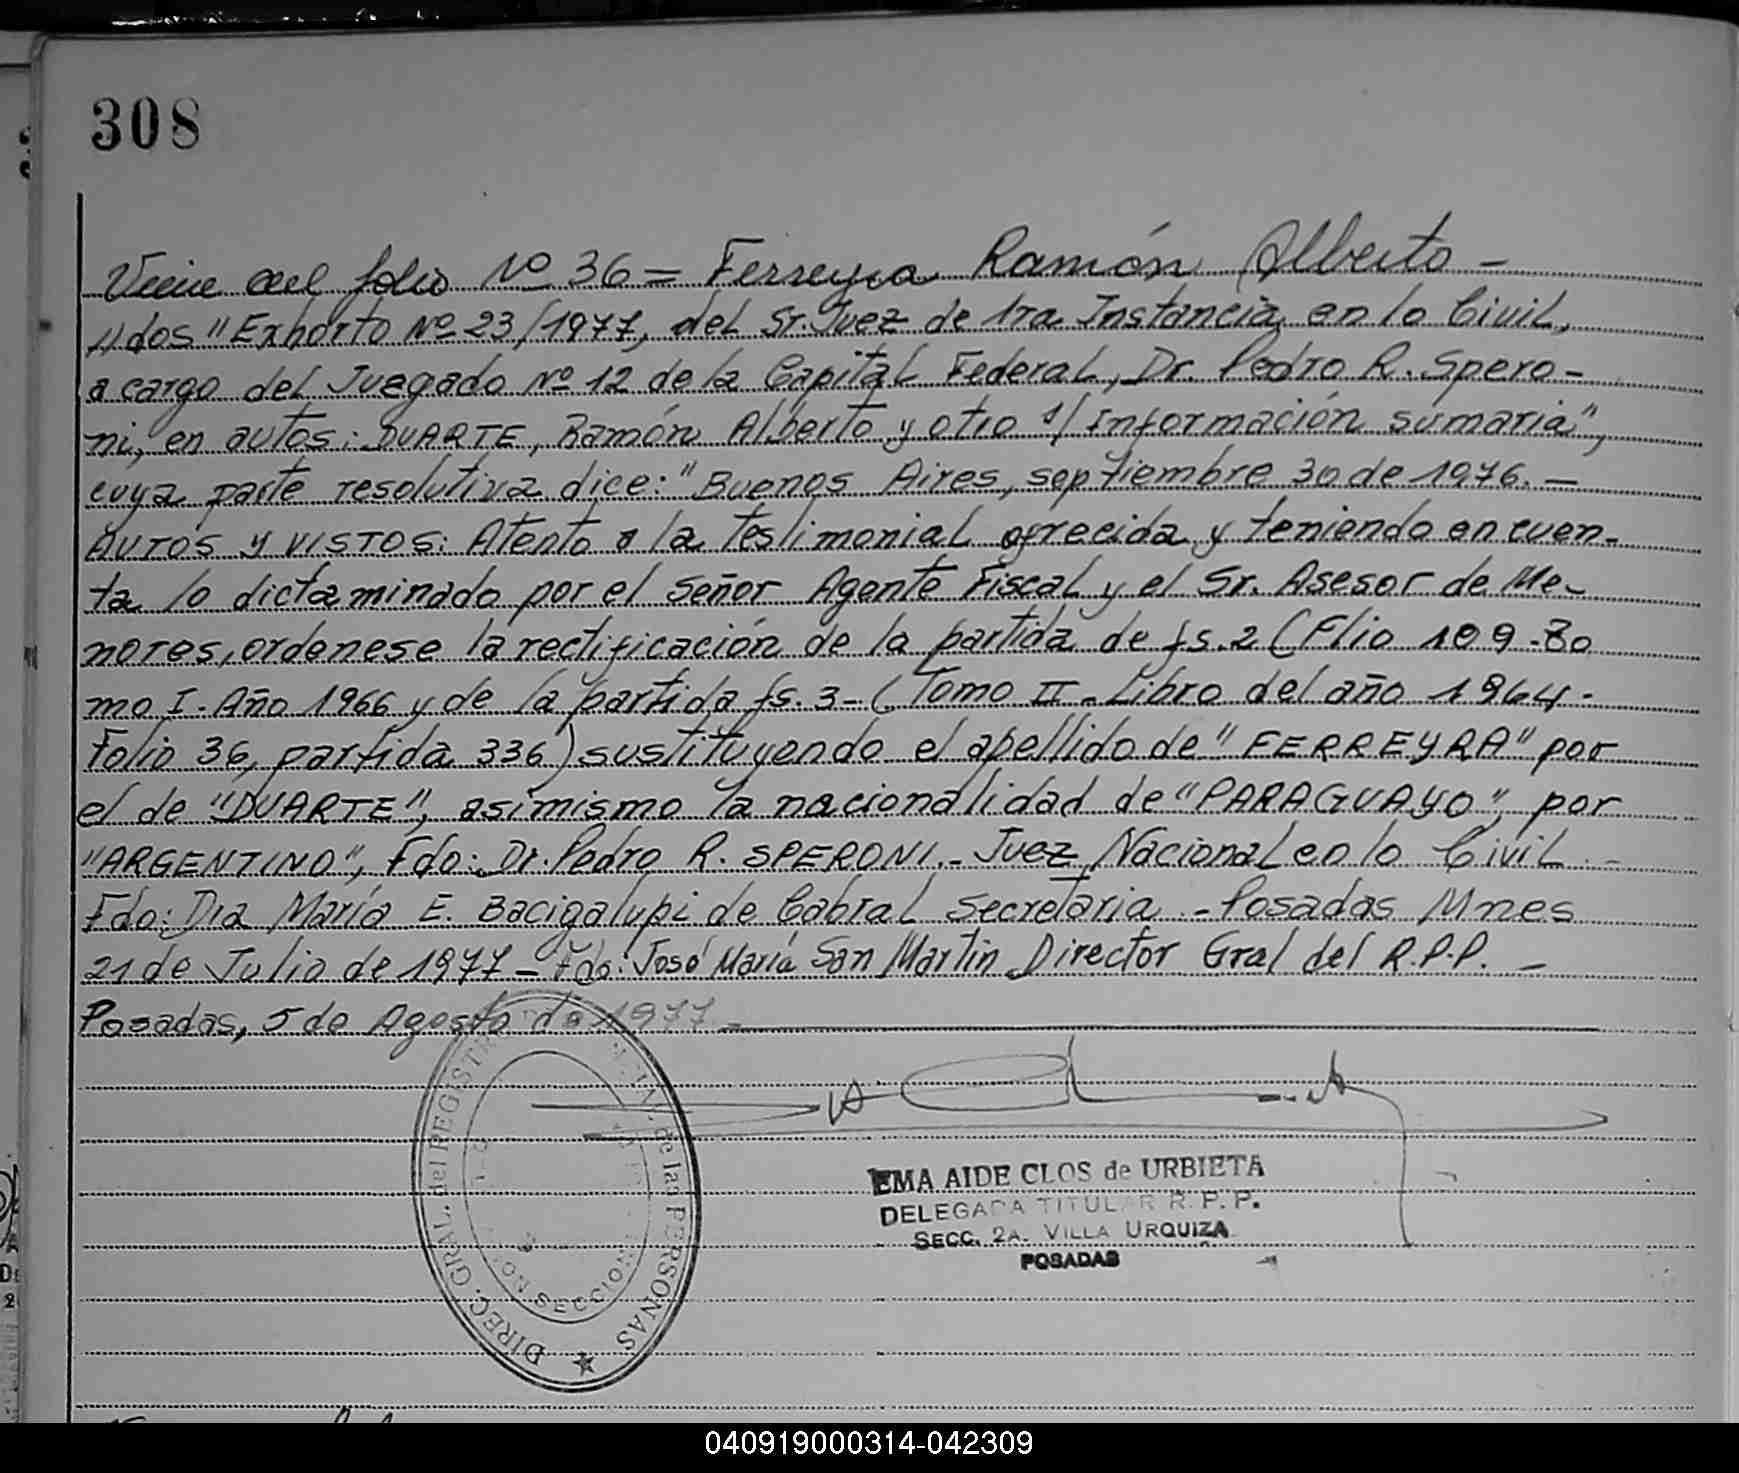 308
Viene del folio Nº 36 = Ferreyra Ramón Alberto -
//dos "Exhorto Nº 23/1977, del Sr. Juez de 1ra Instancia en lo Civil,
a cargo del Juzgado Nº 12 de la Capital Federal, Dr. Pedro R. Spero-
ni, en autos: DUARTE, Ramón Alberto y otro s/ Información sumaria",
cuya parte resolutiva dice: "Buenos Aires, septiembre 30 de 1976. -
AUTOS Y VISTOS: Atento a la testimonial ofrecida y teniendo en cuen-
ta lo dictaminado por el Señor Agente Fiscal y el Sr. Asesor de Me-
nores, ordenese la rectificación de la partida de fs. 2 (Flio 109-
mo I. Año 1966 y de la partida fs. 3 - (Tomo II - Libro del año 1964.
Folio 36, partida 336) sustituyendo el apellido de "FERREYRA" por
el de "DUARTE", asimismo la nacionalidad de "PARAGUAYO", por
"ARGENTINO", Fdo: Dr. Pedro R. SPERONI. - Juez Nacional en lo Civil. -
Fdo: Dra María E. Bacigalupi de Cabral Secretaria. - Posadas Mnes
21 de Julio de 1977 - Fdo: José María San Martin Director Gral del R.P.P. -
Posadas, 5 de Agosto de 1977 -
DIREC. GRAL. del REGISTRO de las PERSONAS
SECCION
EMA AIDE CLOS de URBIETA
DELEGADA TITULAR R. P. P.
SECC. 2A. VILLA URQUIZA
POSADAS
040919000314-042309